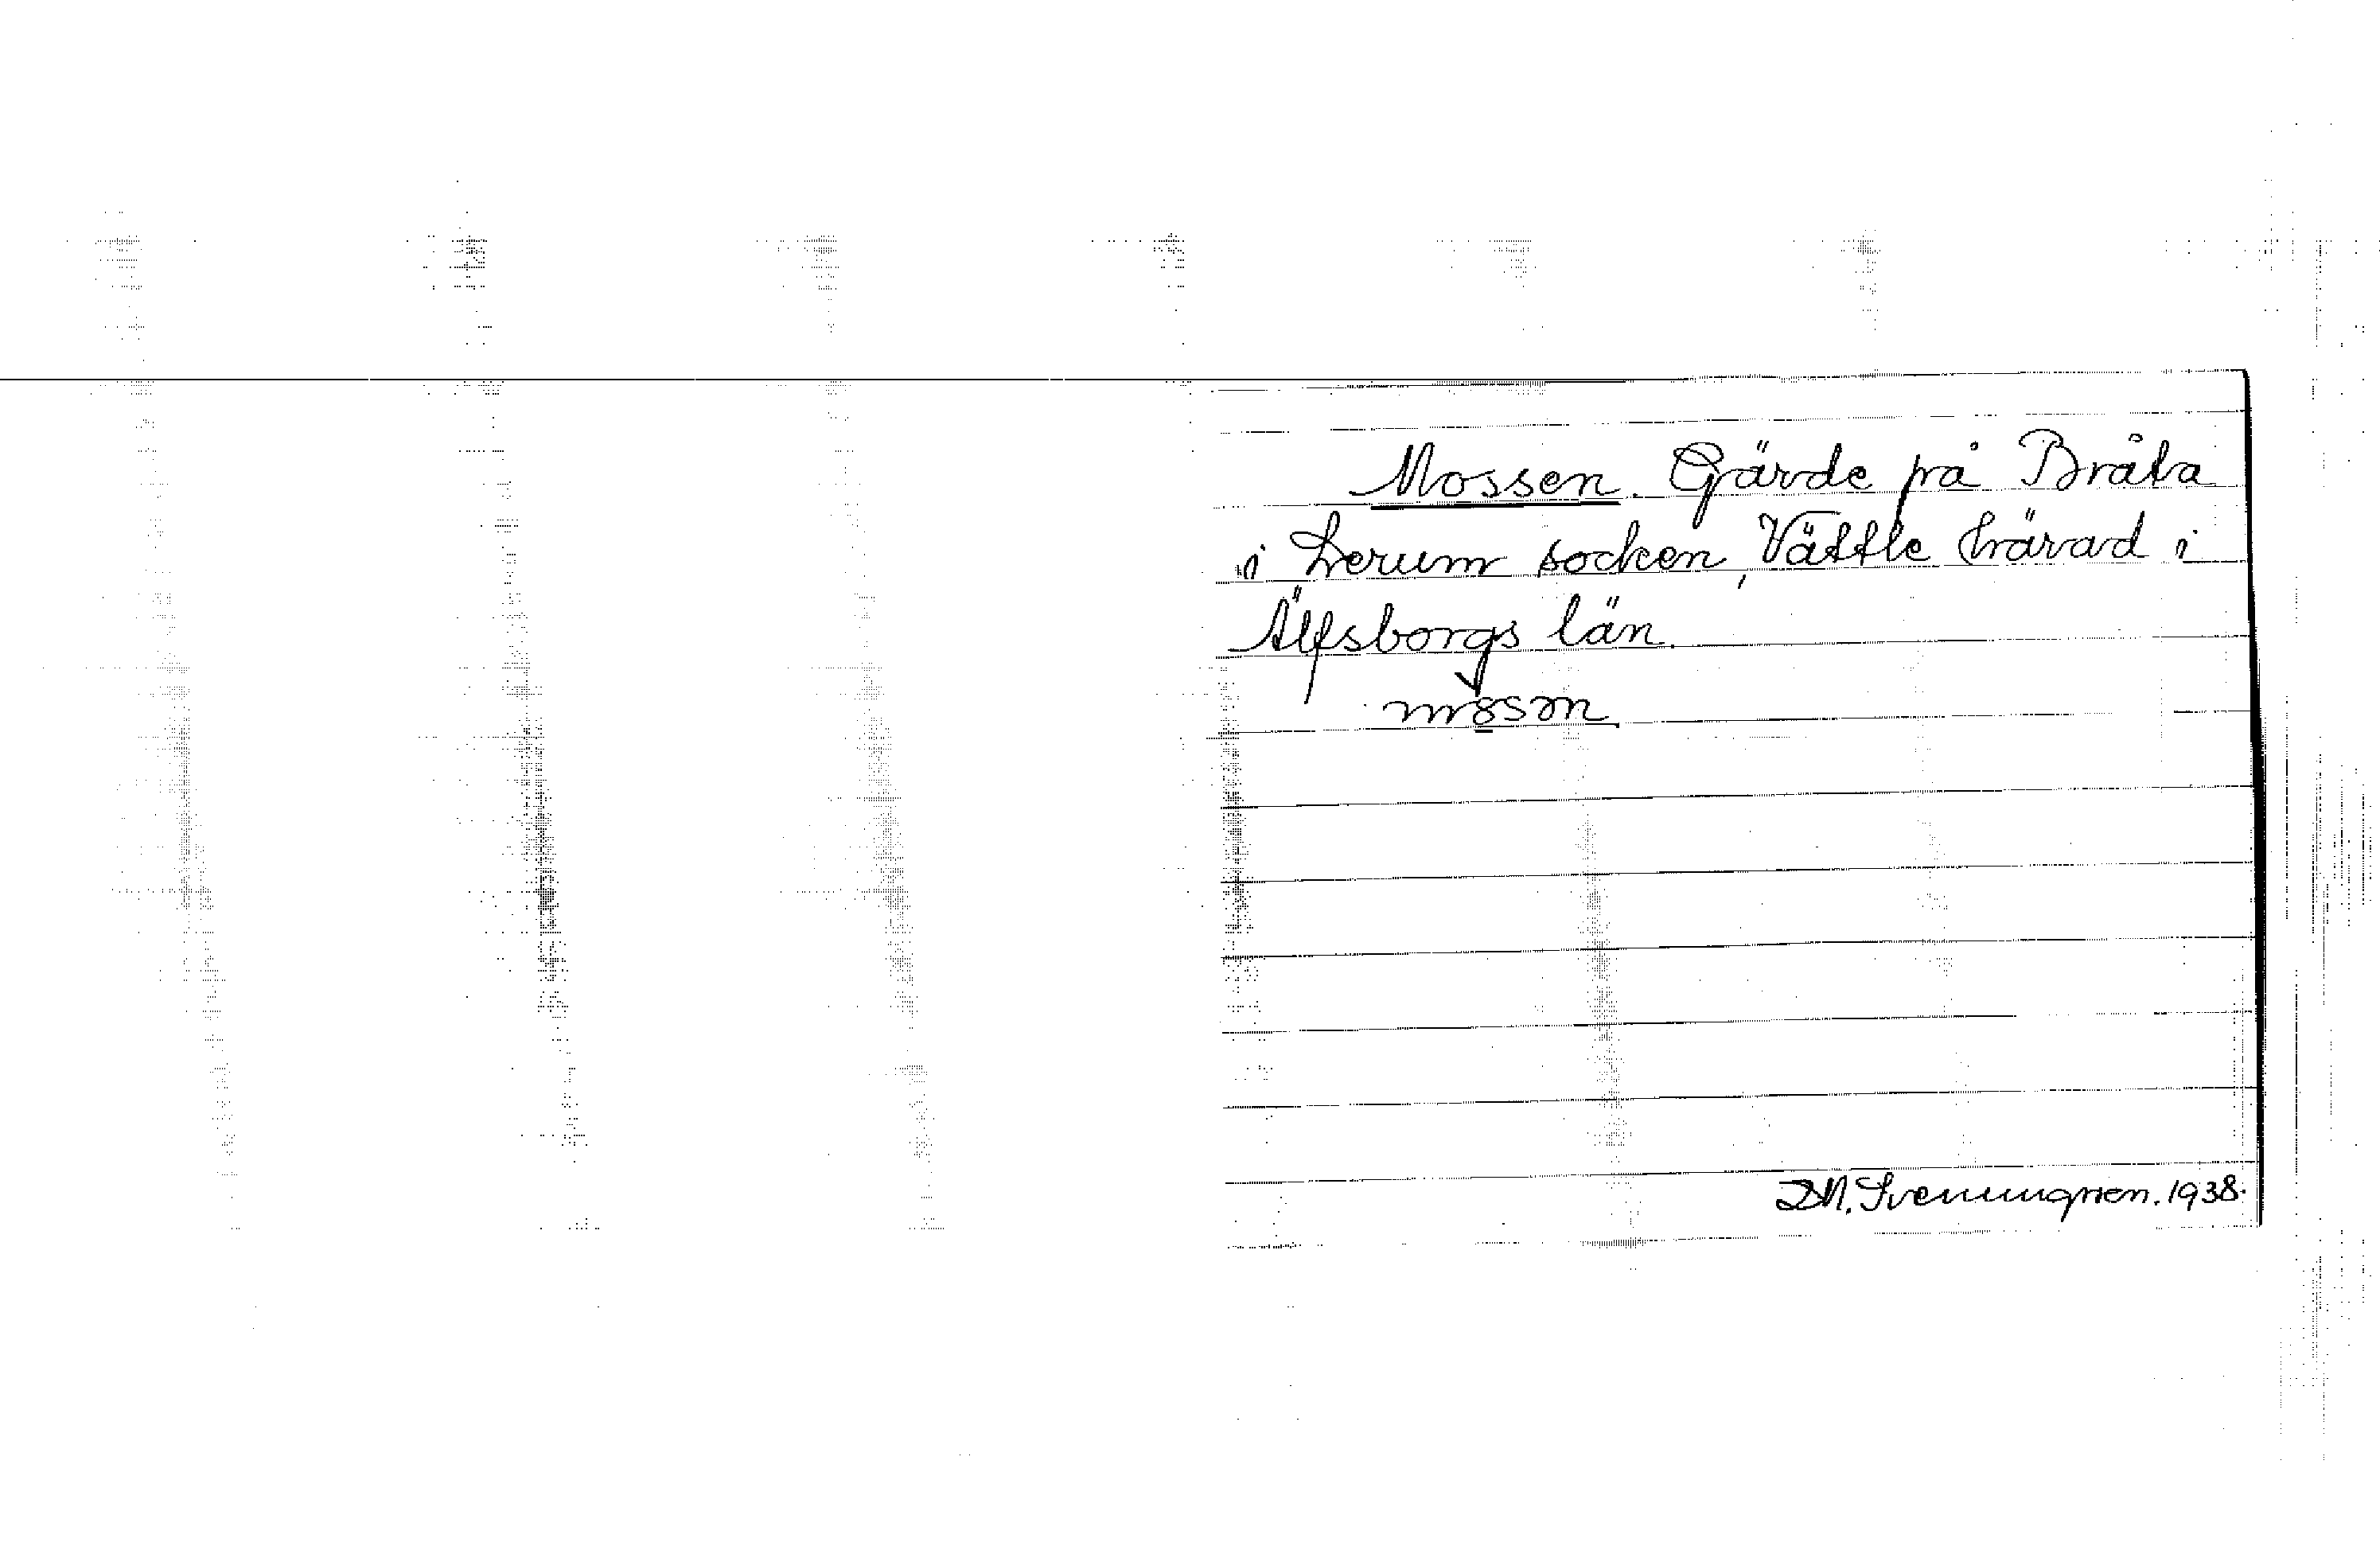 Mossen. Gärde på Bråta
i Lerum socken, Vättle härad i
Älfsborgs län.
D.N. Svenungsson. 1938.